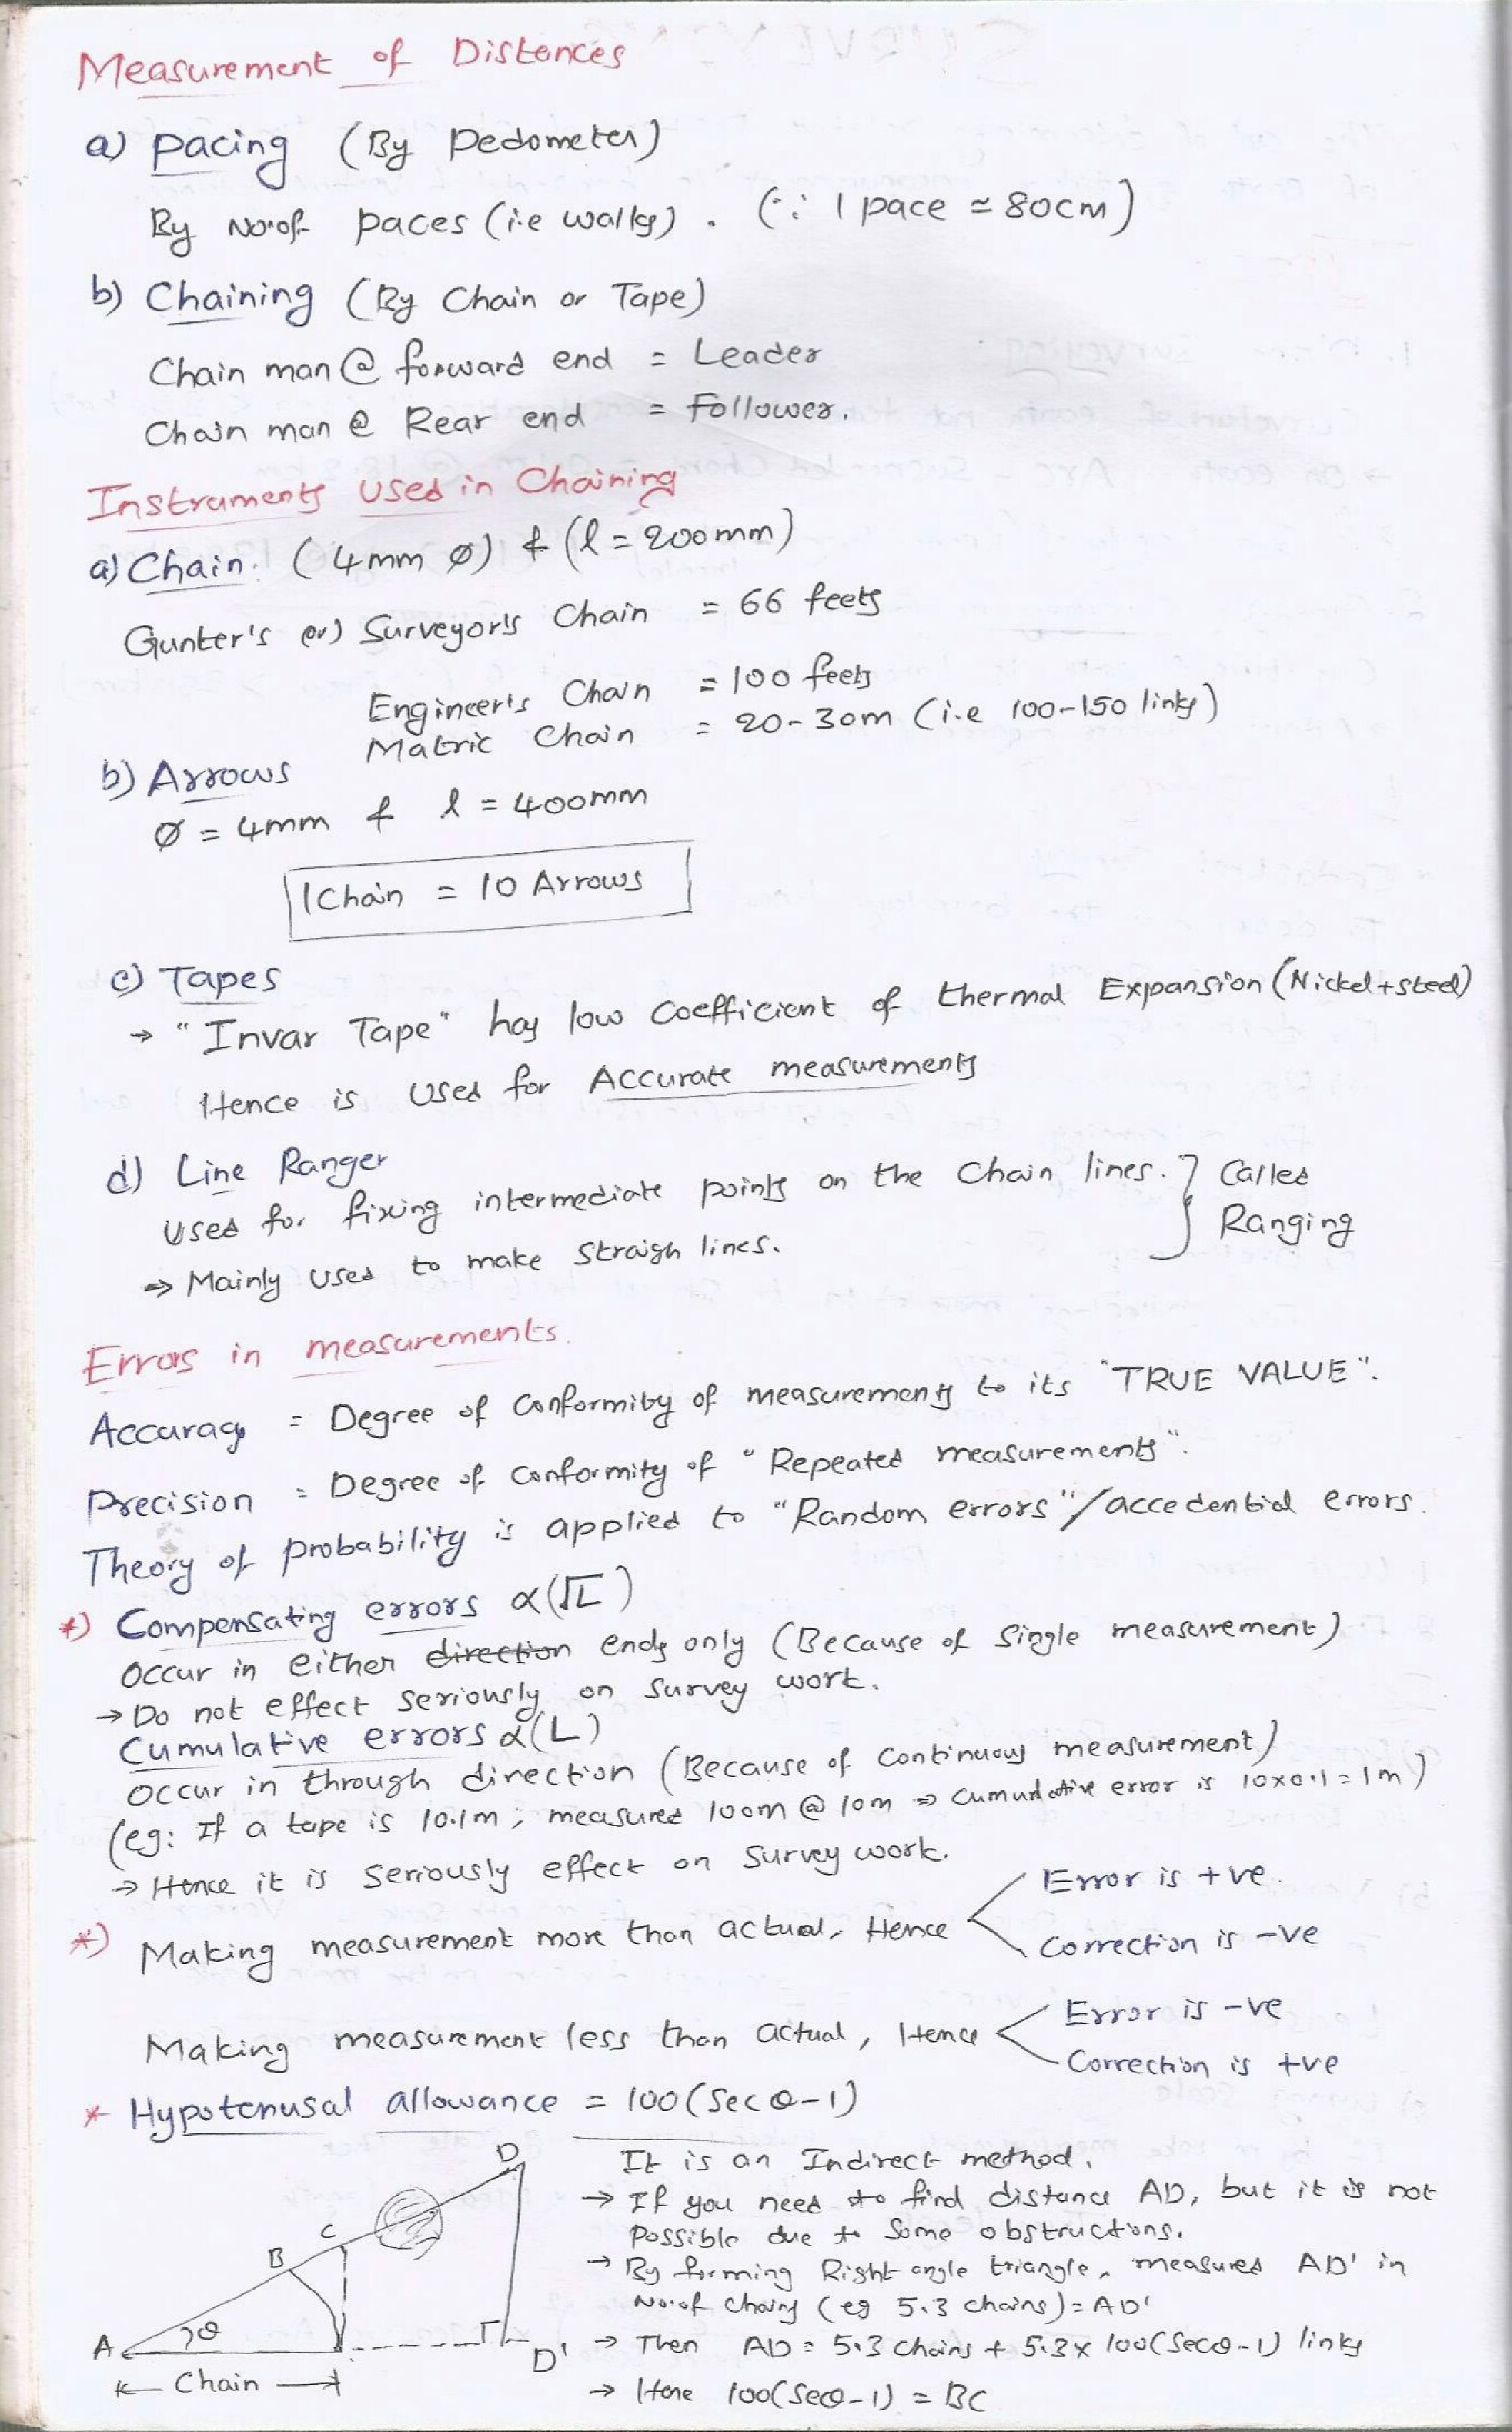 Measurement of Distances
a) Pacing (By Pedometer)
By No. of paces (i.e walks). (∵ 1 pace ≃ 80cm)
b) Chaining (By Chain or Tape)
Chain man @ forward end = Leader
Chain man @ Rear end = Follower.
Instruments used in Chaining
a) Chain. (4mm Ø) & (l = 200mm)
Gunter's (or) Surveyor's Chain = 66 feets
Engineer's Chain = 100 feets
Matric Chain = 20-30m (i.e 100-150 links)
b) Arrows
Ø = 4mm & l = 400mm
1 Chain = 10 Arrows
c) Tapes
→ "Invar Tape" has low Coefficient of thermal Expansion (Nickel+steel)
Hence is used for Accurate measurements
d) Line Ranger
Used for fixing intermediate points on the Chain lines. } Called Ranging
⇒ Mainly used to make straigh lines.
Errors in measurements.
Accuracy = Degree of Conformity of measurements to its "TRUE VALUE".
Precision = Degree of conformity of "Repeated measurements".
Theory of probability is applied to "Random errors"/accedential errors.
*) Compensating errors α(√L)
Occur in either direction ends only (Because of Single measurement)
→ Do not effect seriously on Survey work.
Cumulative errors α(L)
Occur in through direction (Because of Continuous measurement)
(eg: If a tape is 10.1m; measured 100m @ 10m ⇒ Cumulative error is 10x0.1 = 1m)
→ Hence it is seriously effect on Survey work.
*) Making measurement more than actual, Hence
Error is +ve.
Correction is -ve
Making measurement less than actual, Hence
Error is -ve
Correction is +ve
* Hypotenusal allowance = 100(Sec θ-1)
It is an Indirect method.
→ If you need to find distance AD, but it is not
Possible due to Some obstructions.
→ By forming Right angle triangle, measured AD' in
No. of chains (eg 5.3 chains) = AD'
→ Then AD = 5.3 chains + 5.3 x 100(Secθ-1) links
→ Here 100(Secθ-1) = BC
D
C
B
A
θ
D'
Chain